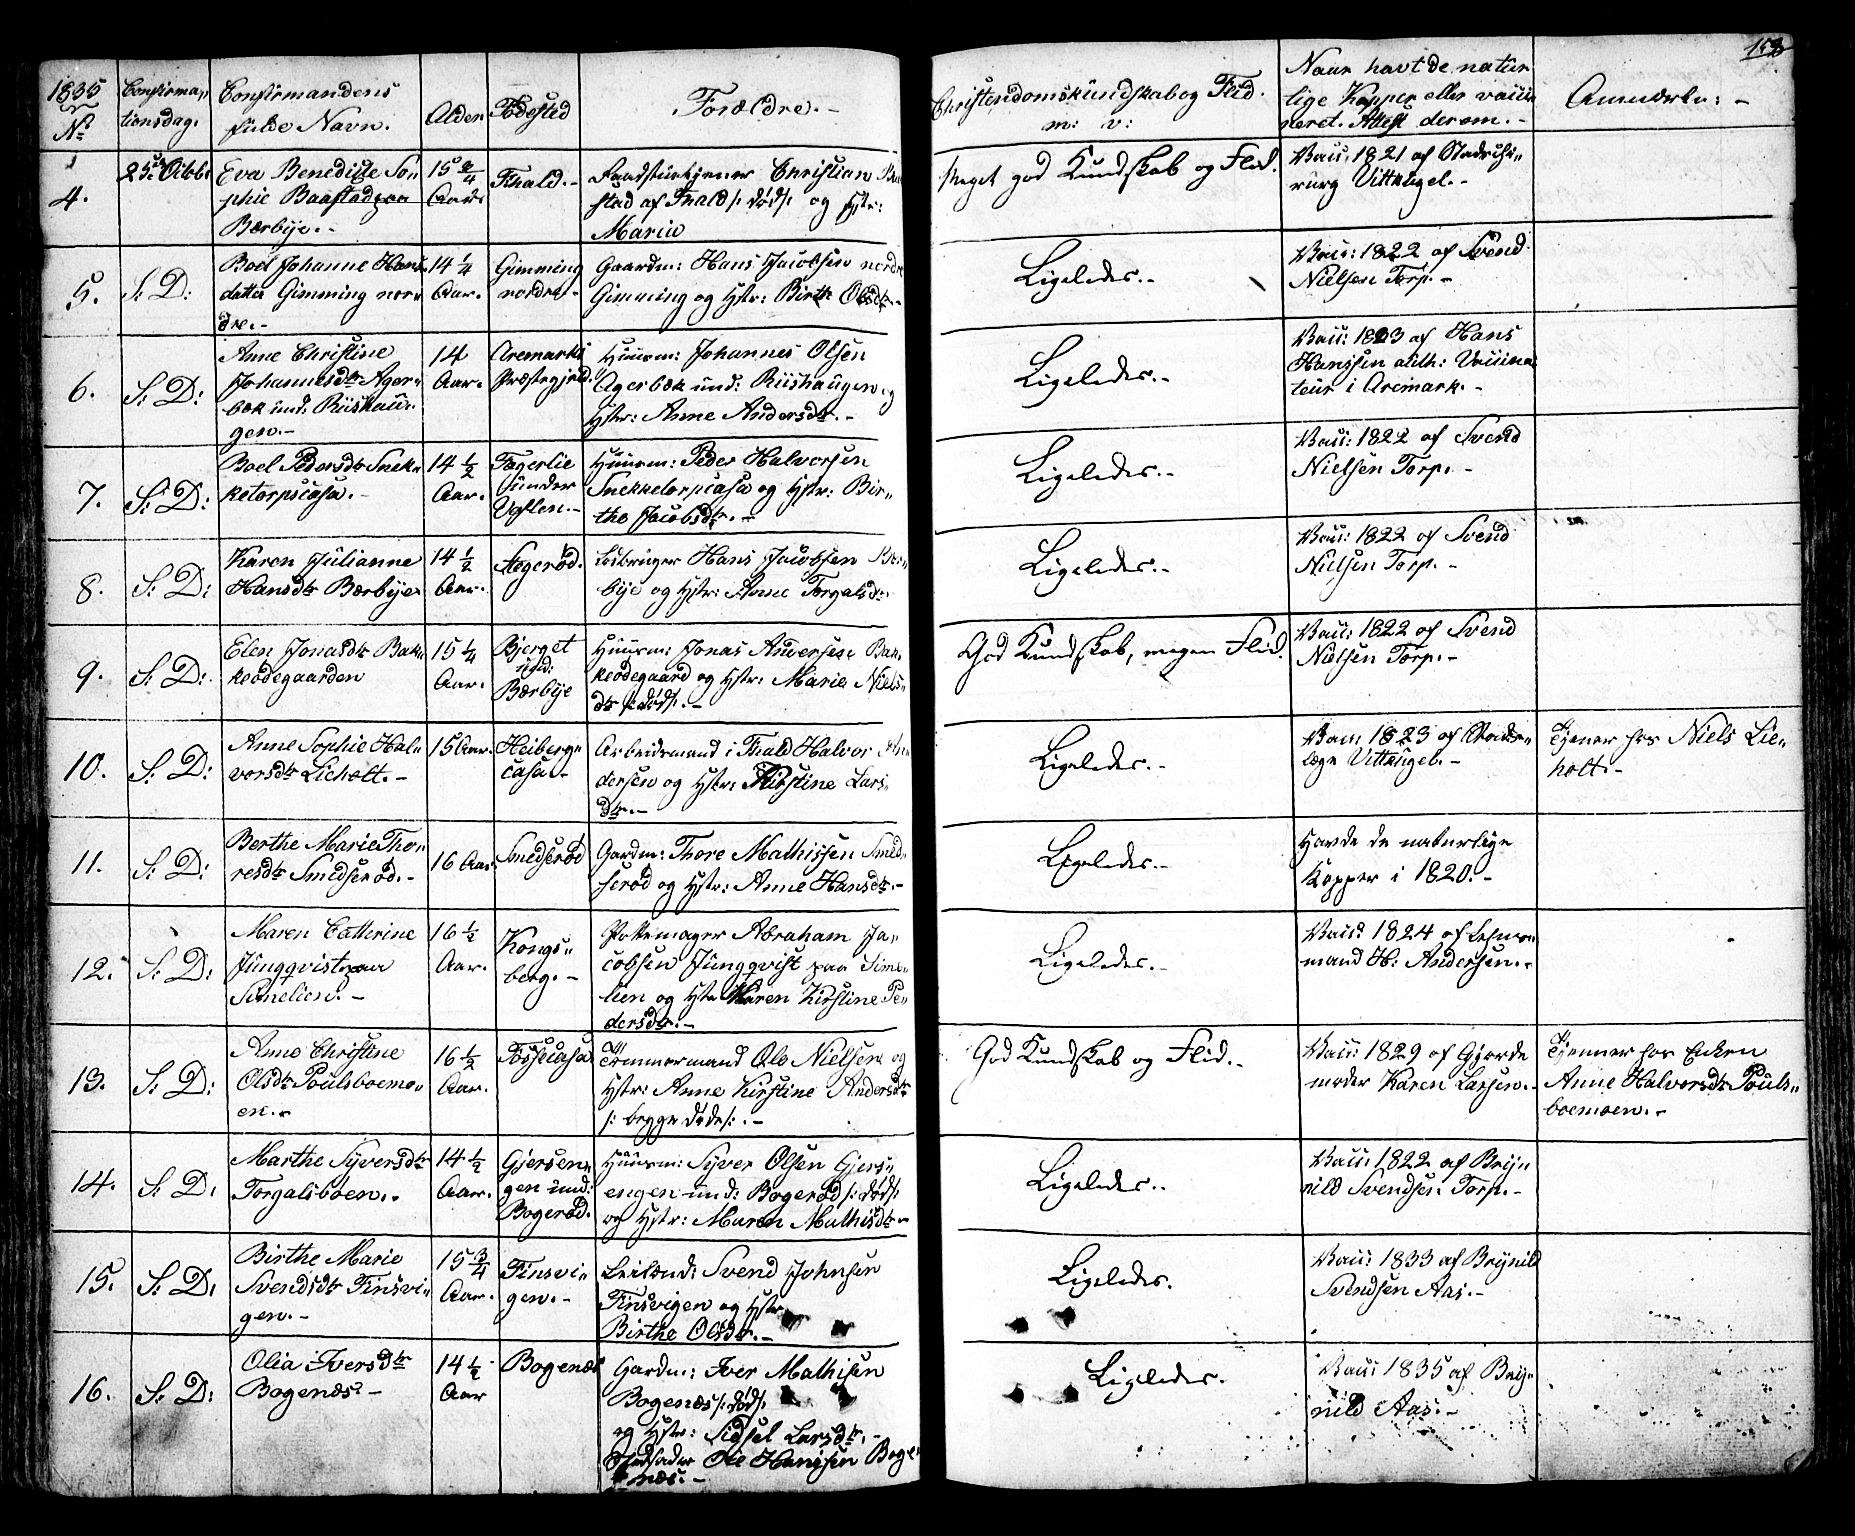 158
1835
No
Confirma„
tionsdag.
Confirmandens
fulde Navn.
Alder
Fødested
Forældre.-
Christendomskundskab og Flid.
m: v:
Naar havt de natur
lige Kopper eller vacci
neret. Attest derom.-
Anmærkn:-
4.
25de Octbr
Eva Benedicte So„
phie Baastad paa
Bærbye.-
15 3/4
Aar.
Fhald.-
Raadstuetjener Christian Ba
stad af Fhald /: død :/ og Hstr:
Marie
Meget god Kundskab og Flid.
Vacc: 1821 af Stadschi„
rurg Vittkugel.-
5.
S: D:
Boel Johanne Hans
datter Gimming nor„
dre.-
14 1/4
Aar.
Gimming
nordre-
Gaardm: Hans Jacobsen nordre
Gimming og Hstr: Birthe Olsdtr.-
Ligeledes.-
Vacc: 1822 af Svend
Nielsen Torp.-
6.
S: D:
Anne Christine
Johannesdtr Ager„
bæk und: Riishau„
gen.-
14
Aar.
Aremarks
Præstegjeld.
Huusm: Johannes Olsen
Agerbæk und: Riishaugen og
Hstr: Anne Andersdtr.-
Ligeledes.-
Vacc: 1823 af Hans
Hanssen auth: Vaccina„
teur i Aremark.-
7.
S: D:
Boel Pedersdtr Snek„
ketorpscasa.-
14 1/2
Aar.
Fagerlie
under
Ugslen.-
Huusm: Peder Halvorsen
Snekketorpcasa og Hstr: Bir„
the Jacobsdtr.-
Ligeledes.-
Vacc: 1822 af Svend
Nielsen Torp.-
8.
S: D:
Karen Julianne
Hansdtr Bærbye
14 1/2
Aar.
Hans Jacobsen Bær„
bye og Hstr: Anne Torgalsdtr
Ligeledes.-
Vacc: 1822 af Svend
Nielsen Torp.-
9.
S: D:
Elen Jonasdtr Bak„
keødegaarden
15 1/4
Aar.
Bjerget
und:
Bærbye
Huusm: Jonas Andersen Bak„
keødegaard og Hstr: Marie Niels„
dtr /: død :/.-
God Kundskab, megen Flid.
Vacc: 1822 af Svend
Nielsen Torp.-
10.
S: D:
Anne Sophie Hal„
vorsdtr Lieholt.-
15 Aar.
Heibergs„
casa-
Arbeidsmand i Fhald Halvor An
dersen og Hstr: Kirstine Lars„
dtr.-
Ligeledes.-
Vacc 1823 af Stads„
læge Vittkugel.-
Tjener hos Niels Lie„
holt.-
11.
S: D:
Berthe Marie Tho„
resdtr Smedserød.-
16 Aar.
Smedserød
Gardm: Thore Mathissen Smed„
serød og Hstr: Anne Hansdtr.-
Ligeledes.-
Havde de naturlige
Kopper i 1820.-
12.
S: D:
Maren Cathrine
Jungqvist paa
Simelien.-
16 1/2
Aar.
Kongs„
berg.-
Pottemager Abraham Ja„
cobsen Jungqvist paa Sime„
lien og Hstr Karen Kirstine Pe„
dersdtr.-
Ligeledes.-
Vacc: 1824 af Lehns„
mand H: Andersen.-
13.
S: D:
Anne Christine
Olsdtr Poulsboemo„
en.-
16 1/2
Aar.
Fossecasa
Tømmermand Ole Nielsen og
Hstr: Anne Kirstine Andersdtr
/: begge døde :/.-
God Kundskab og Flid.-
Vacc: 1829 af Gjorde
moder Karen Larsen.-
Tjenner hos Enken
Anne Halvorsdtr Pouls„
boemoen.-
14.
S: D:
Marthe Syversdtr
Torgalsboen.-
14 1/2
Aar.
Gjersen„
gen und:
Bogerød.
Huusm: Syver Olsen Gjers„
engen und: Bogerød /: død :/
og Hstr: Maren Mathisdtr-
Ligeledes.-
Vacc: 1822 af Bryn„
nild Svendsen Torp.-
15.
S: D:
Birthe Marie
Svendsdtr Finsvi„
gen.-
15 3/4
Aar.
Finsvi„
gen.-
Leilænd: Svend Johnsen
Finsvigen og Hstr
Birthe Olsdtr.-
Ligeledes.
Vacc: 1833 af Brynild
Svendsen Aas.-
16.
S: D:
Olia Iversdtr
Bogenæs-
14 1/2
Aar
Bogenæs
Gardm: Iver Mathisen
Bogenæs /: død :/
og Hstr: Sidsel Larsdtr.-
Stedfader Ole Hanssen Boge
næs.-
Ligeledes.
Vacc: 1835 af Bryn„
nild Aas.-